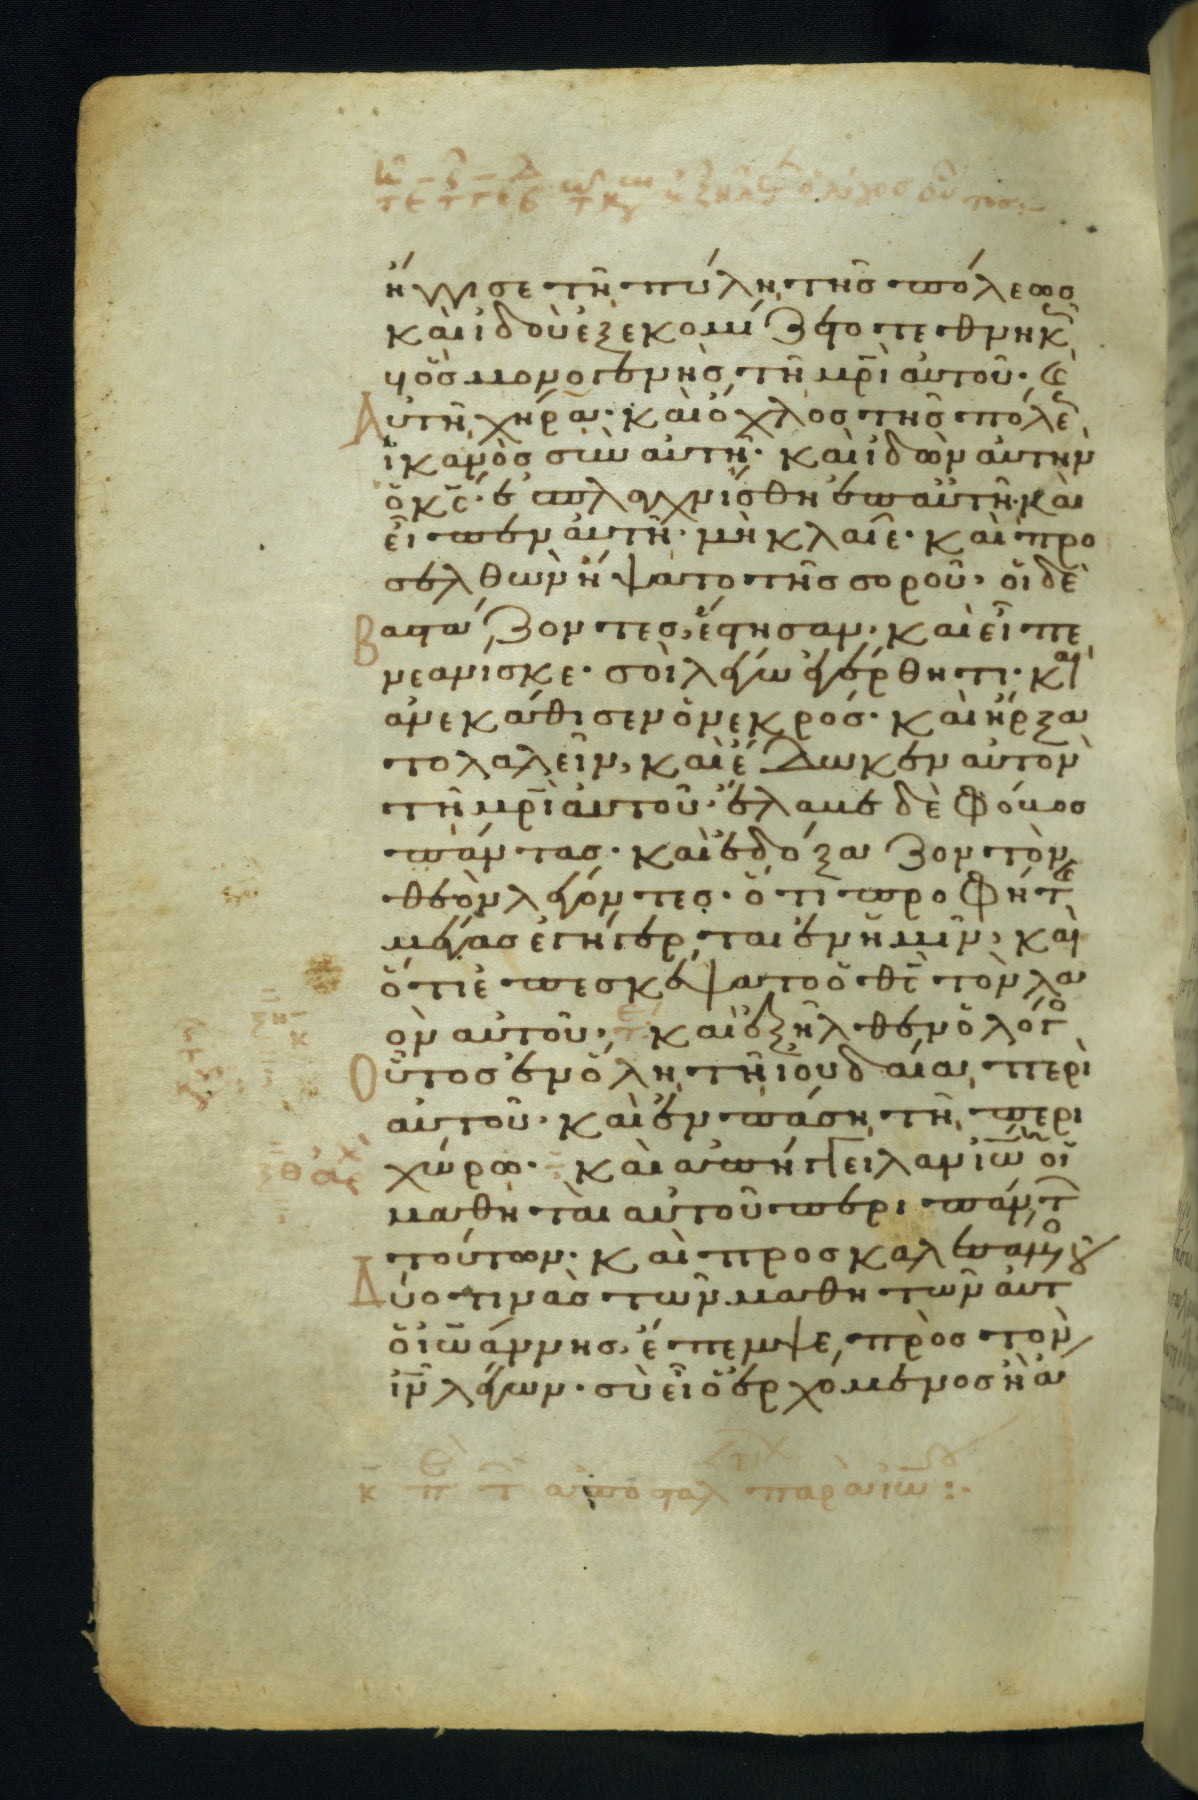 ἤγγισε τῆ πύλη, τῆς πόλεως
καὶ ἰδοὺ ἐξεκομίζετο τεθνηκ
υἱὸς μονογενὴς τῆ μρὶ αὐτοῦ· κ
αὐτὴ χήρα· καὶ ὄχλος τῆς πόλε
ἱκανὸς σὺν αὐτῆ· καὶ ἰδὼν αὐτὴν
ὁ κς· ἐσπλαγχνίσθη ἐπ αὐτῆ· καὶ
εἶπεν αὐτῆ· μὴ κλαῖε· καὶ προ
σελθὼν ἥψατο τῆς σοροῦ· οἱ δὲ
βαστάζοντες, ἔστησαν· καὶ εἶπε,
νεανίσκε· σοὶ λέγω ἐγέρθητι· καὶ
ἀνεκάθισεν ὁ νεκρός· καὶ ἤρξα
το λαλεῖν, καὶ ἔδωκεν αὐτὸν
τῆ μρὶ αὐτοῦ· ἔλαβε δὲ φόβος
πάντας· καὶ ἐδόξαζον τὸν
θεὸν λέγοντες· ὅτι προφήτ
μέγας ἐγήγερται ἐν ἡμῖν, καὶ
ὅτι ἐπεσκέψατο ὁ θς τὸν λα
ὸν αὐτοῦ· καὶ ἐξῆλθεν ὁ λόγ
οὗτος ἐν ὅλη, τῆ ἰουδαία, περὶ
αὐτοῦ· καὶ ἐν πάση, τῆ, περι
χώρω· καὶ ἀπήγγειλαν ἰω οἱ
μαθηταὶ αὐτοῦ περὶ πάντ
τούτων· καὶ προσκαλεσάμ
δύο τινὰς τῶν μαθητῶν αὐτ
ὁ ἰωάννης, ἔπεμψε, πρὸς τὸν
ιν λέγων· σὺ εἶ ὁ ἐρχόμενος ἢ ἄ